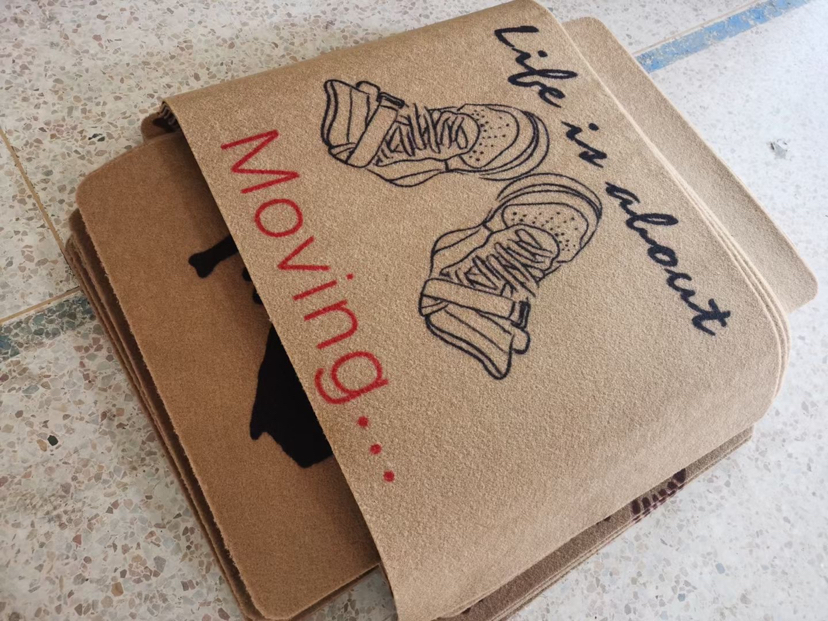 Life is about
Moving...